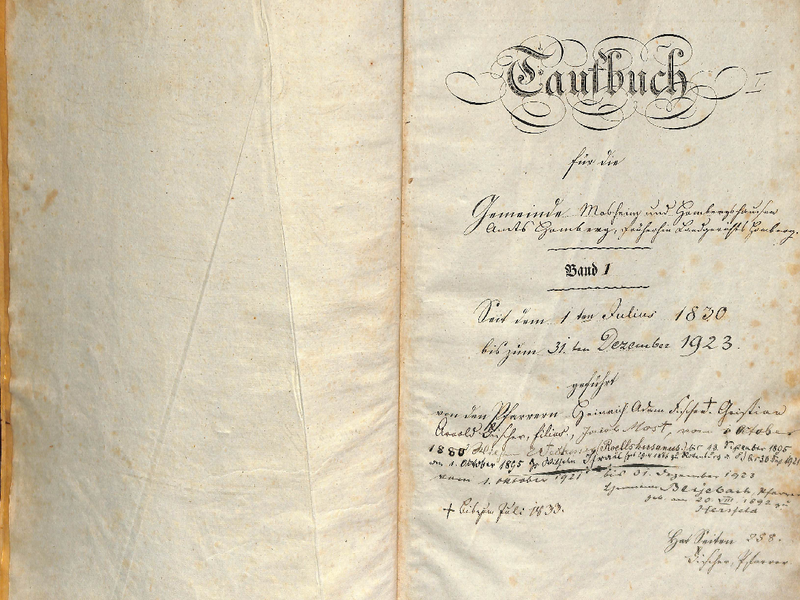 Taufbuch I
für die
Gemeinde Mosheim und Hombergshausen
Amts Homberg, früherhin Landgerichts Homberg.
Band 1
Seit dem 1ten Julius 1830
bis zum 31.ten Dezember 1923.
geführt
von den Pfarrern Heinrich Adam Fischer † Christian
Arnold Fischer, filius, Jacob Most, vom Oktober
1880 bis 13. September 1895
am 1. Oktober 1895 Wilhelm
vom 1. Oktober 1921 bis 31. Dezember 1923
Hermann Pfarrer
geb. am 20. VIII. 1892 zu
Hersfeld
† bis zum Juli 1833.
Hat Seiten 258.
Fischer, Pfarrer